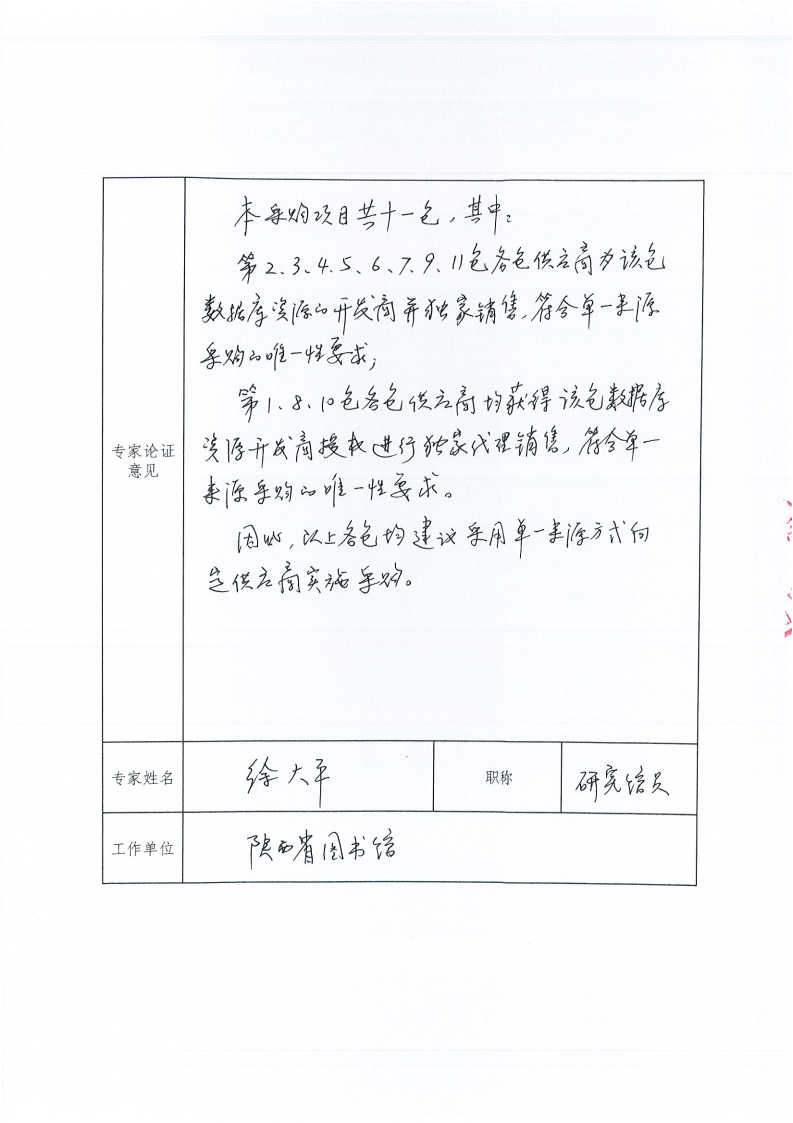 本采购项目共十一包，其中：
第2、3、4、5、6、7、9、11包各包供应商为该包
数据库资源的开发商并独家销售，符合单一来源
采购的唯一性要求；
第1、8、10包各包供应商均获得该包数据库
资源开发商授权进行独家代理销售，符合单一
来源采购的唯一性要求。
因此，以上各包均建议采用单一来源方式向
定供应商实施采购。
专家论证
意见
专家姓名
徐大平
职称
研究馆员
工作单位
陕西省图书馆